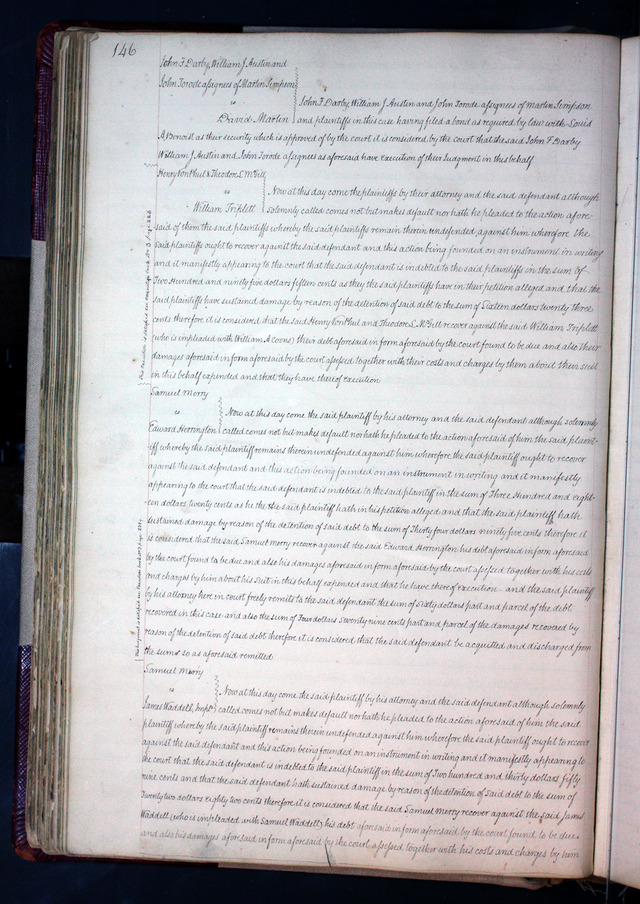 146
John F Darby, William J. Austin and
John Torode assignees of Martin Simpson
vs
David Martin
John F Darby, William J Austin and John Torode assignees of Martin Simpson
and plaintiffs in this case having filed a bond as required by law with Louis
A Benoist as their security which is approved of by the court it is considered by the Court that the said John F Darby
William J Austin and John Torode assignees as aforesaid have execution of their Judgment in this behalf
Henry Von Phul & Theodore L McGill
vs
William Triplett
Now at this day come the plaintiffs by their attorney and the said defendant although
solemnly called comes not but makes default nor hath he pleaded to the action afore-
said of them the said plaintiffs whereby the said plaintiffs remain therein undefended against him wherefore the
said plaintiffs ought to recover against the said defendant and this action being founded on an instrument in writing
and it manifestly appearing to the court that the said defendant is indebted to the said plaintiffs in the sum of
Two Hundred and ninety five dollars fifteen cents as they the said plaintiffs have in their petition alleged and that the
said plaintiffs have sustained damage by reason of the detention of said debt to the sum of Sixteen dollars twenty three
cents therefore it is considered that the said Henry Von Phul and Theodore L. McGill recover against the said William Triplett
(who is impleaded with William A Coons) their debt aforesaid in form aforesaid by the court found to be due and also their
damages aforesaid in form aforesaid by the court assessed together with their costs and charges by them about their suit
in this behalf expended and that they have thereof execution
Samuel Merry
vs
Edward Herrington
Now at this day come the said plaintiff by his attorney and the said defendant although solemnly
called comes not but makes default nor hath he pleaded to the action aforesaid of him the said plaint-
iff whereby the said plaintiff remains therein undefended against him wherefore the said plaintiff ought to recover
against the said defendant and this action being founded on an instrument in writing and it manifestly
appearing to the court that the said defendant is indebted to the said plaintiff in the sum of Three Hundred and eight-
een dollars twenty cents as he the the said plaintiff hath in his petition alleged and that the said plaintiff hath
sustained damage by reason of the detention of said debt to the sum of Thirty four dollars ninety five cents therefore it
is considered that the said Samuel Merry recover against the said Edward Herrington his debt aforesaid in form aforesaid
by the court found to be due and also his damages aforesaid in form aforesaid by the court assessed together with his costs
and charges by him about his suit in this behalf expended and that he have thereof execution and the said plaintiff
by his attorney here in court freely remits to the said defendant the sum of Sixty dollars part and parcel of the debt
recovered in this case and also the sum of Four dollars seventy nine cents part and parcel of the damages recovered by
reason of the detention of said debt therefore it is considered that the said defendant be acquitted and discharged from
the sums so as aforesaid remitted
Samuel Merry
vs
James Waddell,
Now at this day come the said plaintiff by his attorney and the said defendant although solemnly
called comes not but makes default nor hath he pleaded to the action aforesaid of him the said
plaintiff whereby the said plaintiff remains therein undefended against him wherefore the said plaintiff ought to recover
against the said defendant and this action being founded on an instrument in writing and it manifestly appearing to
the court that the said defendant is indebted to the said plaintiff in the sum of Two hundred and thirty dollars fifty
nine cents and that the said defendant hath sustained damage by reason of the detention of said debt to the sum of
Twenty two dollars eighty two cents therefore it is considered that the said Samuel Merry recover against the said James
Waddell (who is impleaded with Samuel Waddell) his debt aforesaid in form aforesaid by the court found to be due
and also his damages aforesaid in form aforesaid by the court assessed together with his costs and charges by him